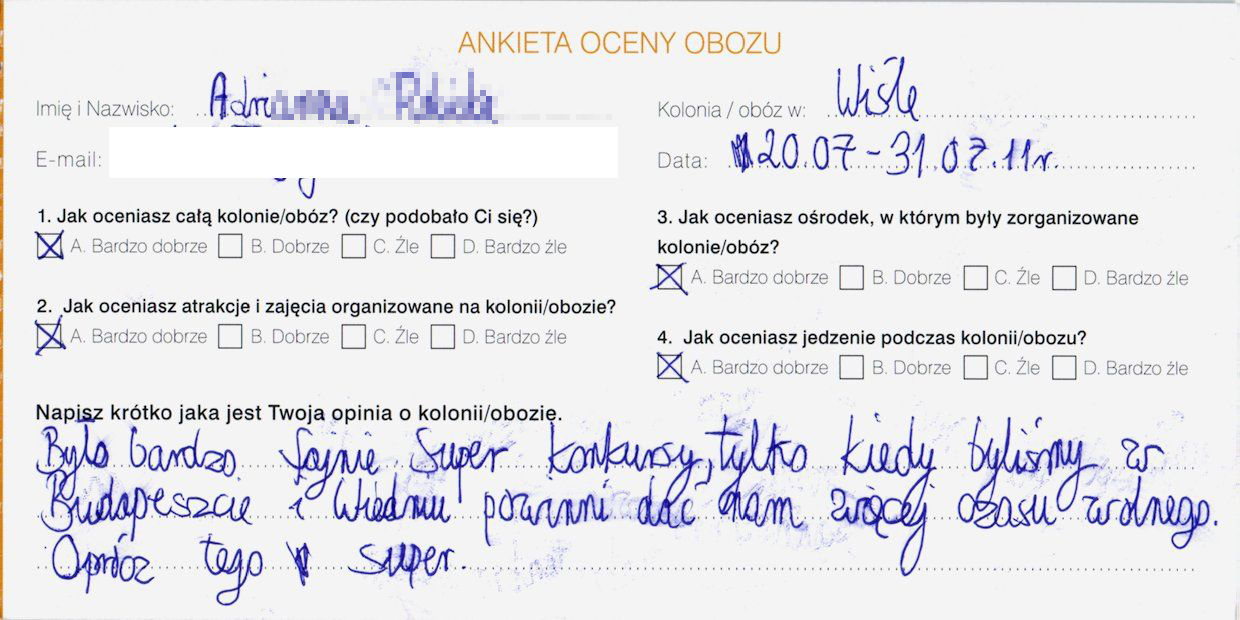 ANKIETA OCENY OBOZU
Imię i Nazwisko: Adrianna
Kolonia / obóz w: Wiśle
E-mail:
Data: 20.07-31.07.11r.
1. Jak oceniasz całą kolonie/obóz? (czy podobało Ci się?)
A. Bardzo dobrze B. Dobrze C. Źle D. Bardzo źle
2. Jak oceniasz atrakcje i zajęcia organizowane na kolonii/obozie?
A. Bardzo dobrze B. Dobrze C. Źle D. Bardzo źle
3. Jak oceniasz ośrodek, w którym były zorganizowane
kolonie/obóz?
A. Bardzo dobrze B. Dobrze C. Źle D. Bardzo źle
4. Jak oceniasz jedzenie podczas kolonii/obozu?
A. Bardzo dobrze B. Dobrze C. Źle D. Bardzo źle
Napisz krótko jaka jest Twoja opinia o kolonii/obozie.
Było bardzo fajnie. Super konkursy, tylko kiedy byliśmy w
Budapeszcie i Wiedniu powinni dać nam więcej czasu wolnego.
Opróz tego super.